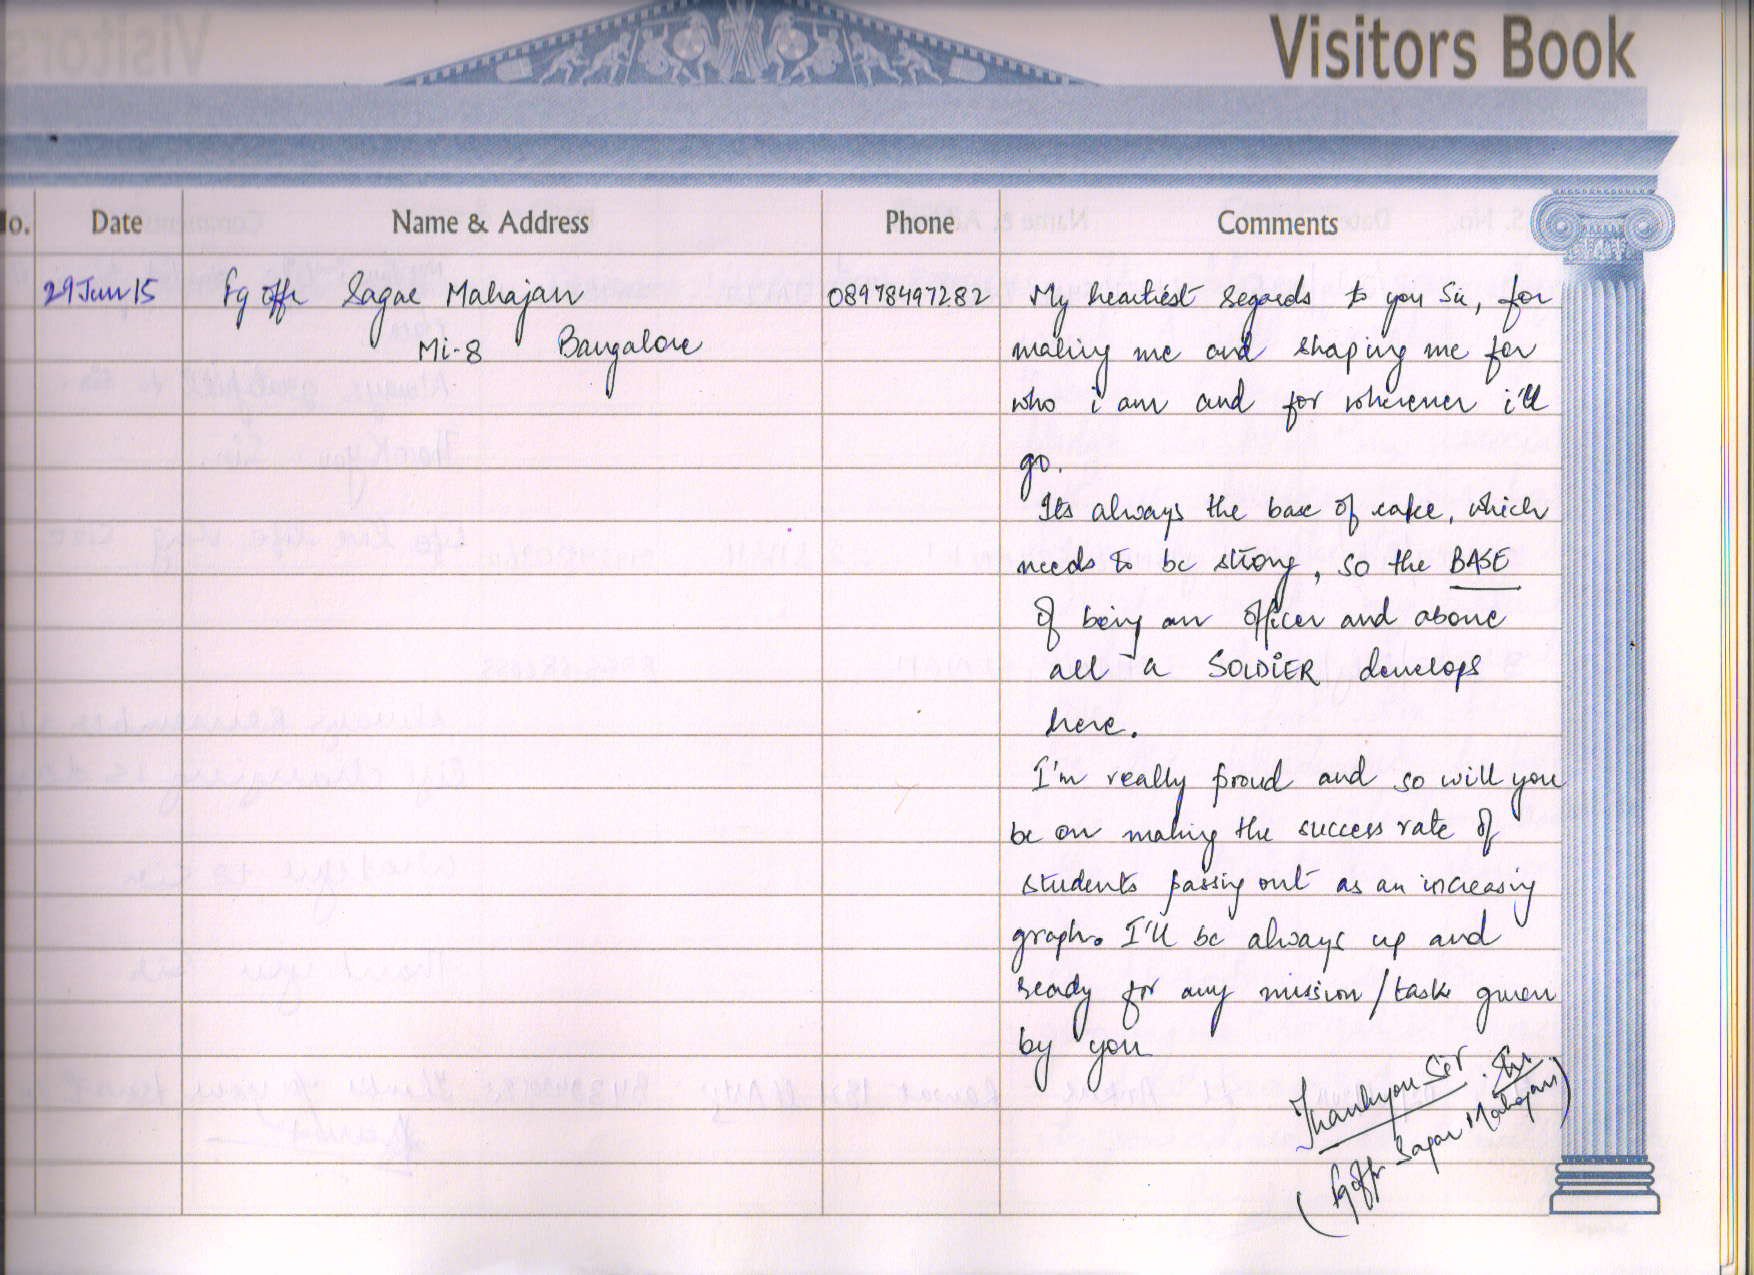 Visitors Book
No. Date Name & Address Phone Comments
29 Jun 15 Fg offr Sagar Mahajan 08978497282 My heartiest regards to you Sir, for
Mi-8 Bangalore making me and shaping me for
who i am and for wherever i'll
go.
Its always the base of cake, which
needs to be strong, so the BASE
of being an officer and above
all a SOLDIER develops
here.
I'm really proud and so will you
be on making the success rate of
students passing out as an increasing
graph. I'll be always up and
ready for any mission/task given
by you
Thankyou Sir.
(Fg offr Sagar Mahajan)